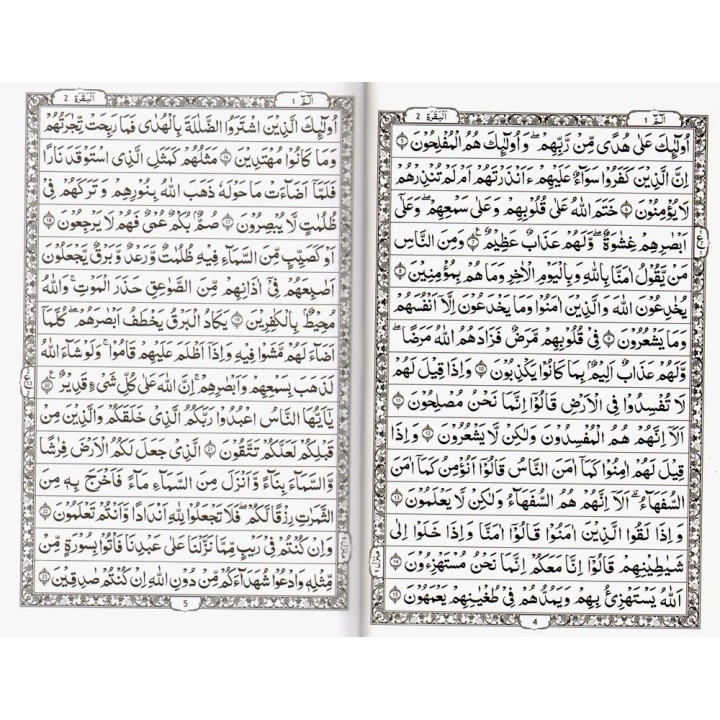 الٓمّٓ 1
اَلْبَقَرَة 2
اُولٰٓئِكَ عَلٰى هُدًى مِّنْ رَّبِّهِمْ ۗ وَاُولٰٓئِكَ هُمُ الْمُفْلِحُوْنَ ۝٥
اِنَّ الَّذِيْنَ كَفَرُوْا سَوَآءٌ عَلَيْهِمْ ءَاَنْذَرْتَهُمْ اَمْ لَمْ تُنْذِرْهُمْ
لَا يُؤْمِنُوْنَ ۝٦ خَتَمَ اللّٰهُ عَلٰى قُلُوْبِهِمْ وَعَلٰى سَمْعِهِمْ ؕ وَعَلٰٓى
اَبْصَارِهِمْ غِشَاوَةٌ ؗ وَّلَهُمْ عَذَابٌ عَظِيْمٌ ۝٧ وَمِنَ النَّاسِ
مَنْ يَّقُوْلُ اٰمَنَّا بِاللّٰهِ وَبِالْيَوْمِ الْاٰخِرِ وَمَا هُمْ بِمُؤْمِنِيْنَ ۝٨
يُخٰدِعُوْنَ اللّٰهَ وَالَّذِيْنَ اٰمَنُوْا ۚ وَمَا يَخْدَعُوْنَ اِلَّآ اَنْفُسَهُمْ
وَمَا يَشْعُرُوْنَ ۝٩ فِيْ قُلُوْبِهِمْ مَّرَضٌ ۙ فَزَادَهُمُ اللّٰهُ مَرَضًا ۚ
وَلَهُمْ عَذَابٌ اَلِيْمٌ ۙ بِمَا كَانُوْا يَكْذِبُوْنَ ۝١٠ وَاِذَا قِيْلَ لَهُمْ
لَا تُفْسِدُوْا فِي الْاَرْضِ ۙ قَالُوْٓا اِنَّمَا نَحْنُ مُصْلِحُوْنَ ۝١١
اَلَآ اِنَّهُمْ هُمُ الْمُفْسِدُوْنَ وَلٰكِنْ لَّا يَشْعُرُوْنَ ۝١٢ وَاِذَا
قِيْلَ لَهُمْ اٰمِنُوْا كَمَآ اٰمَنَ النَّاسُ قَالُوْٓا اَنُؤْمِنُ كَمَآ اٰمَنَ
السُّفَهَآءُ ؕ اَلَآ اِنَّهُمْ هُمُ السُّفَهَآءُ وَلٰكِنْ لَّا يَعْلَمُوْنَ ۝١٣
وَاِذَا لَقُوا الَّذِيْنَ اٰمَنُوْا قَالُوْٓا اٰمَنَّا ۚ وَاِذَا خَلَوْا اِلٰى
شَيٰطِيْنِهِمْ ۙ قَالُوْٓا اِنَّا مَعَكُمْ ۙ اِنَّمَا نَحْنُ مُسْتَهْزِءُوْنَ ۝١٤
اَللّٰهُ يَسْتَهْزِئُ بِهِمْ وَيَمُدُّهُمْ فِيْ طُغْيَانِهِمْ يَعْمَهُوْنَ ۝١٥
منزل ١
4
الٓمّٓ 1
اَلْبَقَرَة 2
اُولٰٓئِكَ الَّذِيْنَ اشْتَرَوُا الضَّلٰلَةَ بِالْهُدٰى ۪ فَمَا رَبِحَتْ تِّجَارَتُهُمْ
وَمَا كَانُوْا مُهْتَدِيْنَ ۝١٦ مَثَلُهُمْ كَمَثَلِ الَّذِي اسْتَوْقَدَ نَارًا ۚ
فَلَمَّآ اَضَآءَتْ مَا حَوْلَهٗ ذَهَبَ اللّٰهُ بِنُوْرِهِمْ وَتَرَكَهُمْ فِيْ
ظُلُمٰتٍ لَّا يُبْصِرُوْنَ ۝١٧ صُمٌّۢ بُكْمٌ عُمْيٌ فَهُمْ لَا يَرْجِعُوْنَ ۝١٨
اَوْ كَصَيِّبٍ مِّنَ السَّمَآءِ فِيْهِ ظُلُمٰتٌ وَّرَعْدٌ وَّبَرْقٌ ۚ يَجْعَلُوْنَ
اَصَابِعَهُمْ فِيْٓ اٰذَانِهِمْ مِّنَ الصَّوَاعِقِ حَذَرَ الْمَوْتِ ؕ وَاللّٰهُ
مُحِيْطٌۢ بِالْكٰفِرِيْنَ ۝١٩ يَكَادُ الْبَرْقُ يَخْطَفُ اَبْصَارَهُمْ ؕ كُلَّمَآ
اَضَآءَ لَهُمْ مَّشَوْا فِيْهِ ۙ وَاِذَآ اَظْلَمَ عَلَيْهِمْ قَامُوْا ؕ وَلَوْ شَآءَ اللّٰهُ
لَذَهَبَ بِسَمْعِهِمْ وَاَبْصَارِهِمْ ؕ اِنَّ اللّٰهَ عَلٰى كُلِّ شَيْءٍ قَدِيْرٌ ۝٢٠
يٰٓاَيُّهَا النَّاسُ اعْبُدُوْا رَبَّكُمُ الَّذِيْ خَلَقَكُمْ وَالَّذِيْنَ مِنْ
قَبْلِكُمْ لَعَلَّكُمْ تَتَّقُوْنَ ۝٢١ الَّذِيْ جَعَلَ لَكُمُ الْاَرْضَ فِرَاشًا
وَّالسَّمَآءَ بِنَآءً ۪ وَّاَنْزَلَ مِنَ السَّمَآءِ مَآءً فَاَخْرَجَ بِهٖ مِنَ
الثَّمَرٰتِ رِزْقًا لَّكُمْ ۚ فَلَا تَجْعَلُوْا لِلّٰهِ اَنْدَادًا وَّاَنْتُمْ تَعْلَمُوْنَ ۝٢٢
وَاِنْ كُنْتُمْ فِيْ رَيْبٍ مِّمَّا نَزَّلْنَا عَلٰى عَبْدِنَا فَاْتُوْا بِسُوْرَةٍ مِّنْ
مِّثْلِهٖ ۪ وَادْعُوْا شُهَدَآءَكُمْ مِّنْ دُوْنِ اللّٰهِ اِنْ كُنْتُمْ صٰدِقِيْنَ ۝٢٣
منزل ١
5